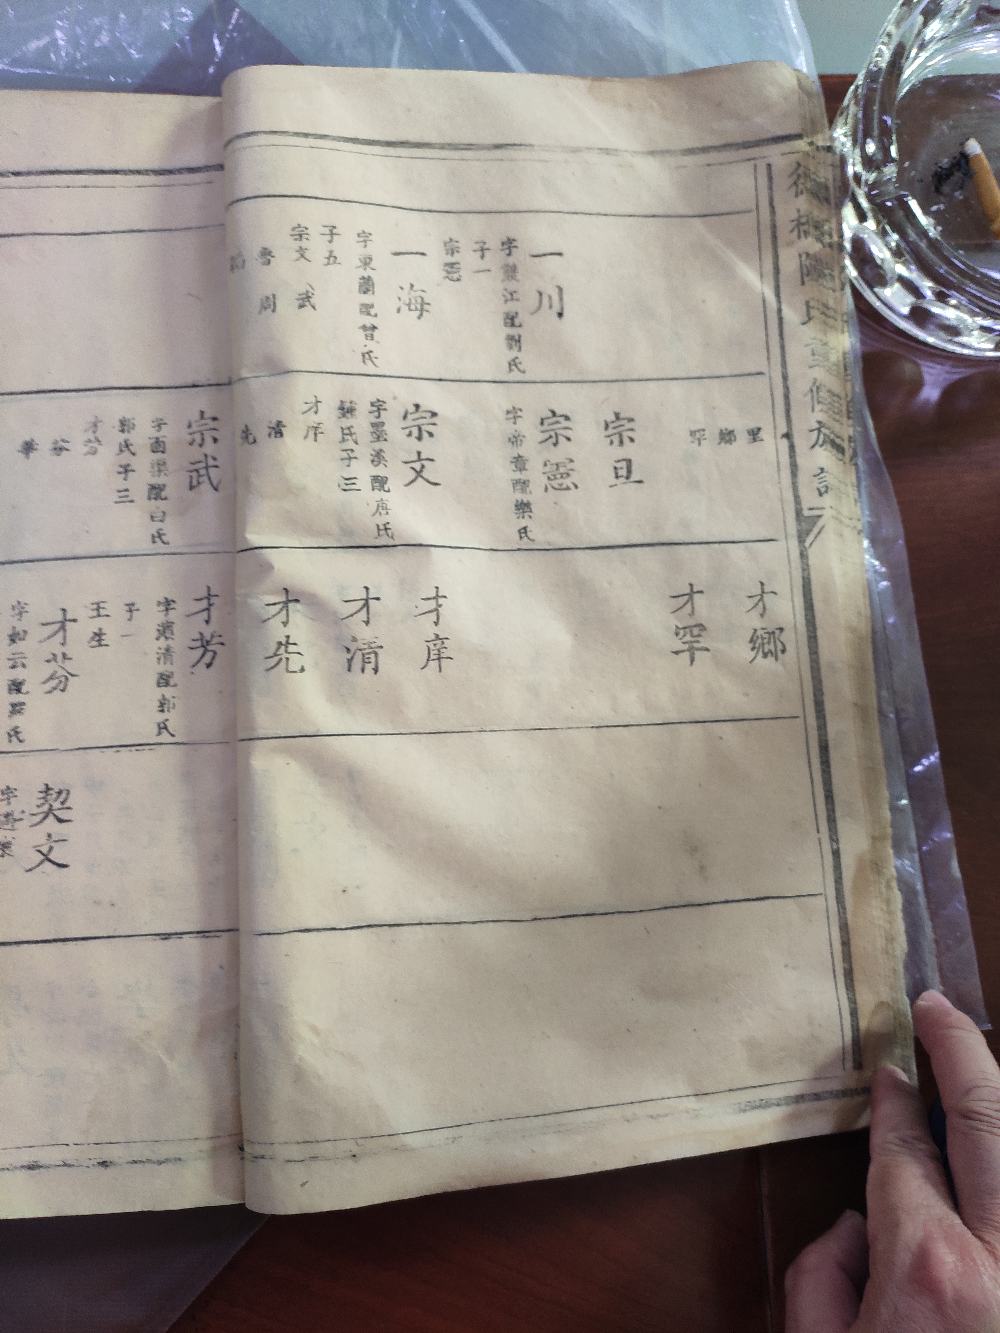 一川
字襲江配劉氏
子一
宗憲
一海
字東蘭配曾氏
子五
宗文 武
魯 周
里
鄉
罕
宗旦
宗憲
字帝章配樂氏
宗文
字墨溪配唐氏
鍾氏子三
才庠
清
先
宗武
字酉渠配白氏
郭氏子三
才芳
芬
華
才鄉
才罕
才庠
才清
才先
才芳
字濱清配郭氏
子一
王生
才芬
字如云配羅氏
契文